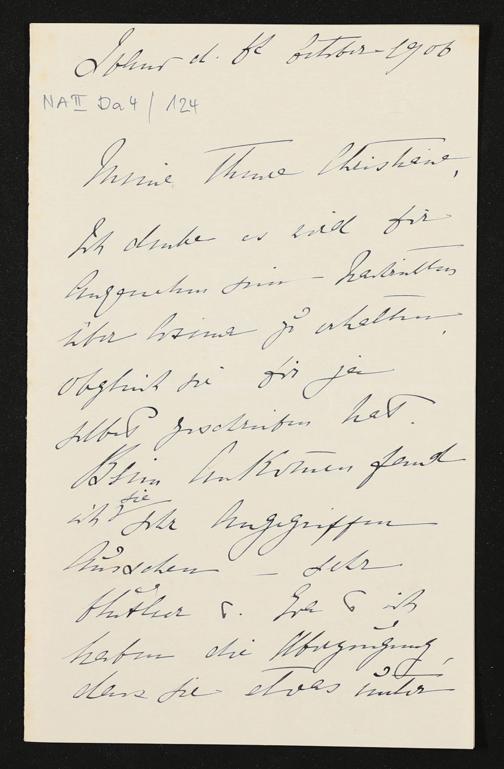 d. October 1906
NA III Da 4 / 124
Meine Theure Christiane,
Ich denke es wird Dir
Angenehm sein – Nachrichten
über Cosima zu erhalten,
obgleich sie Dir ja
selbst geschrieben hat.
Beim Ankommen fand
ich sie sehr Angegriffen
Aussehen – sehr
. Eva & ich
haben die Überzeugung,
dass sie etwas unter